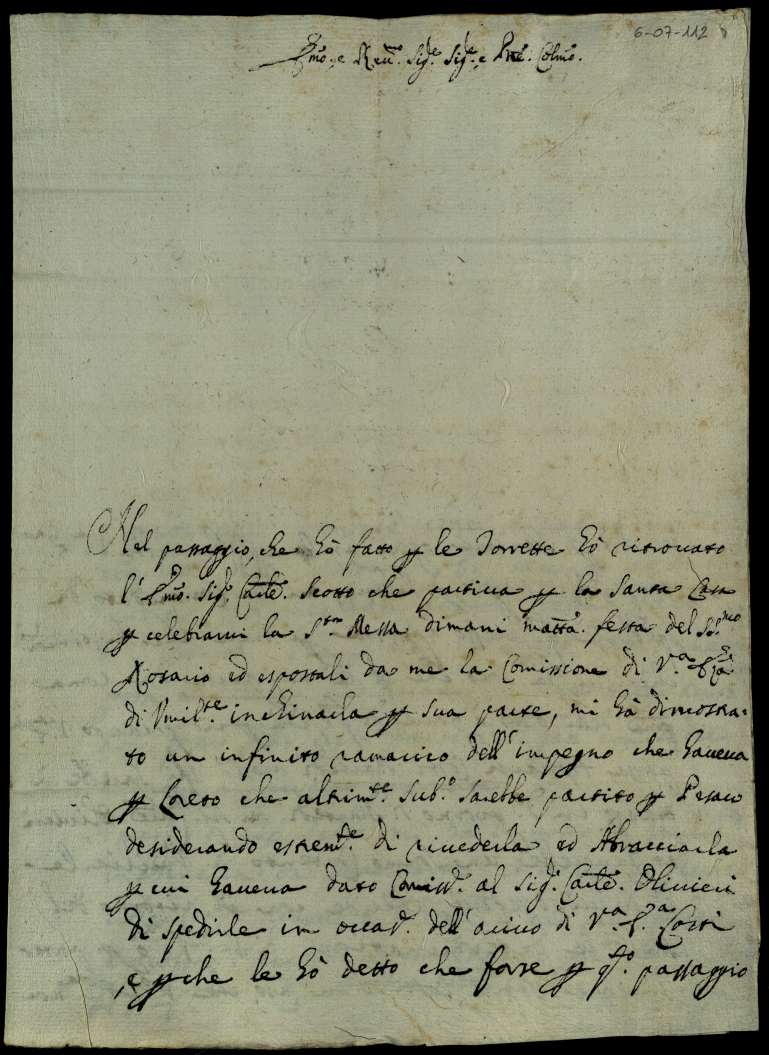 6-07-112
Emo., e Reumo. Sigr. Sigr., e Pne. Colmo.
Nel passaggio, che hò fatto p le Torrette hò ritrouato
l' Emo. Sigr. Carle. Scotto che partiua p la Santa Casa
p celebrarui la Sta Messa dimani matta. festa del SSmo
Rosario ed espostali da me la Comissione di Va. Eza.
di Vmilte. inchinarla p sua parte, mi hà dimostra=
to un infinito ramarico dell' impegno che haueua
p Loreto che altrimte. subo. sarebbe partito p Pesaro
desiderando estremte. di riuederla ed Abracciarla
p cui haueua dato Comisse. al Sigr. Carle. Oliuieri
di spedirle in occae. dell' ariuo di Va. Ea. Costì
, e pche le hò detto che forse p qto. passaggio